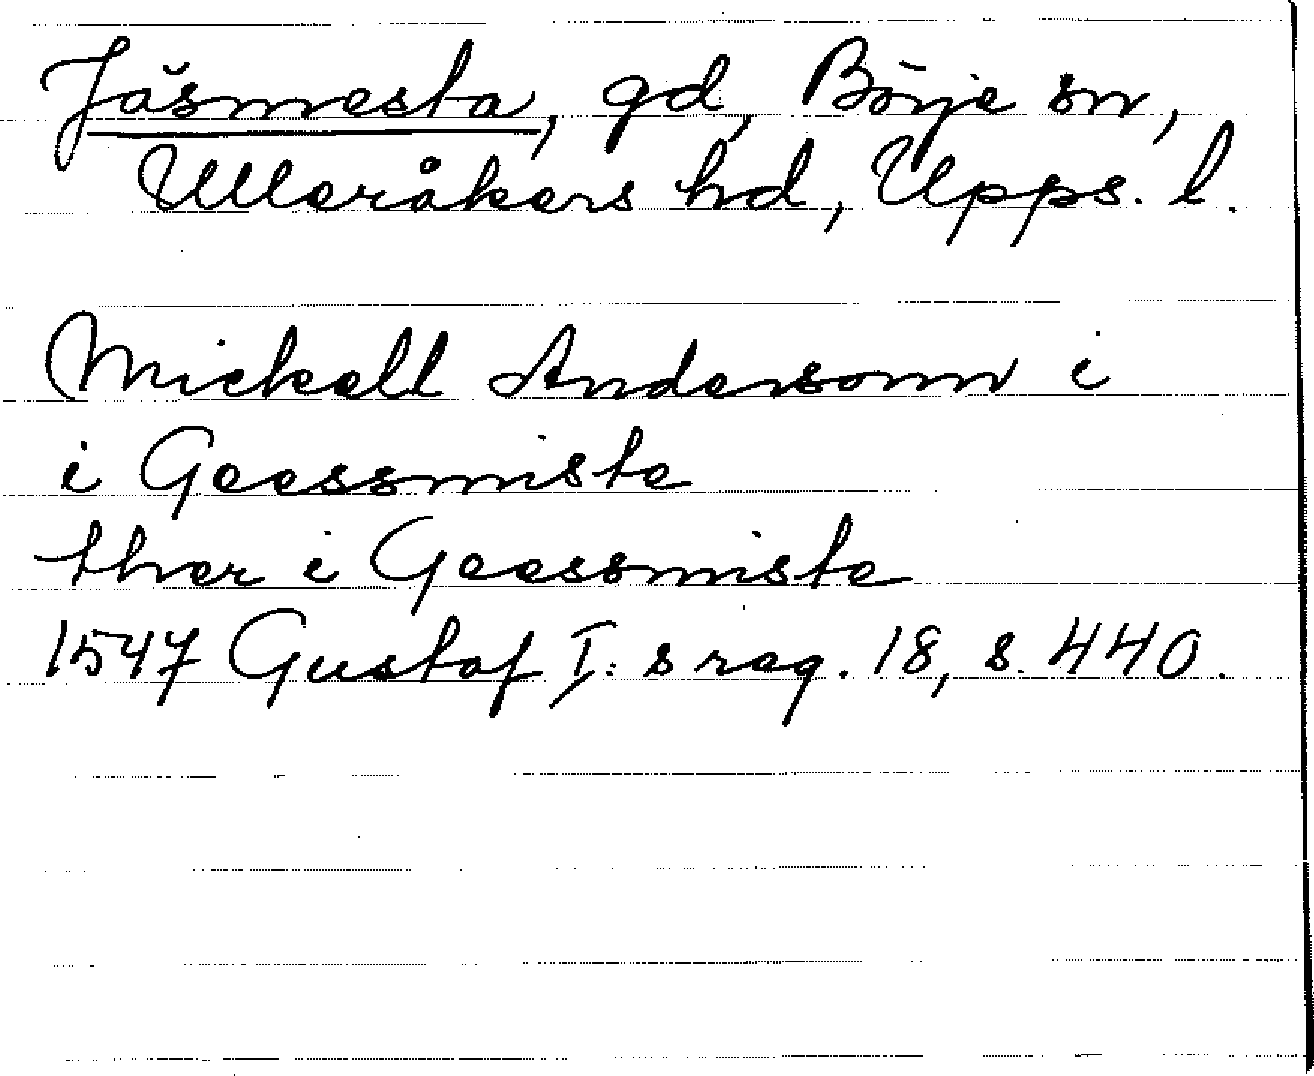 Jäsmesta, gd, Börje sn,
Ulleråkers hd, Upps. l.
Mickell Andersonn i
i Geessmiste
ther i Geessmiste
1547 Gustaf I:s reg. 18, s. 440.